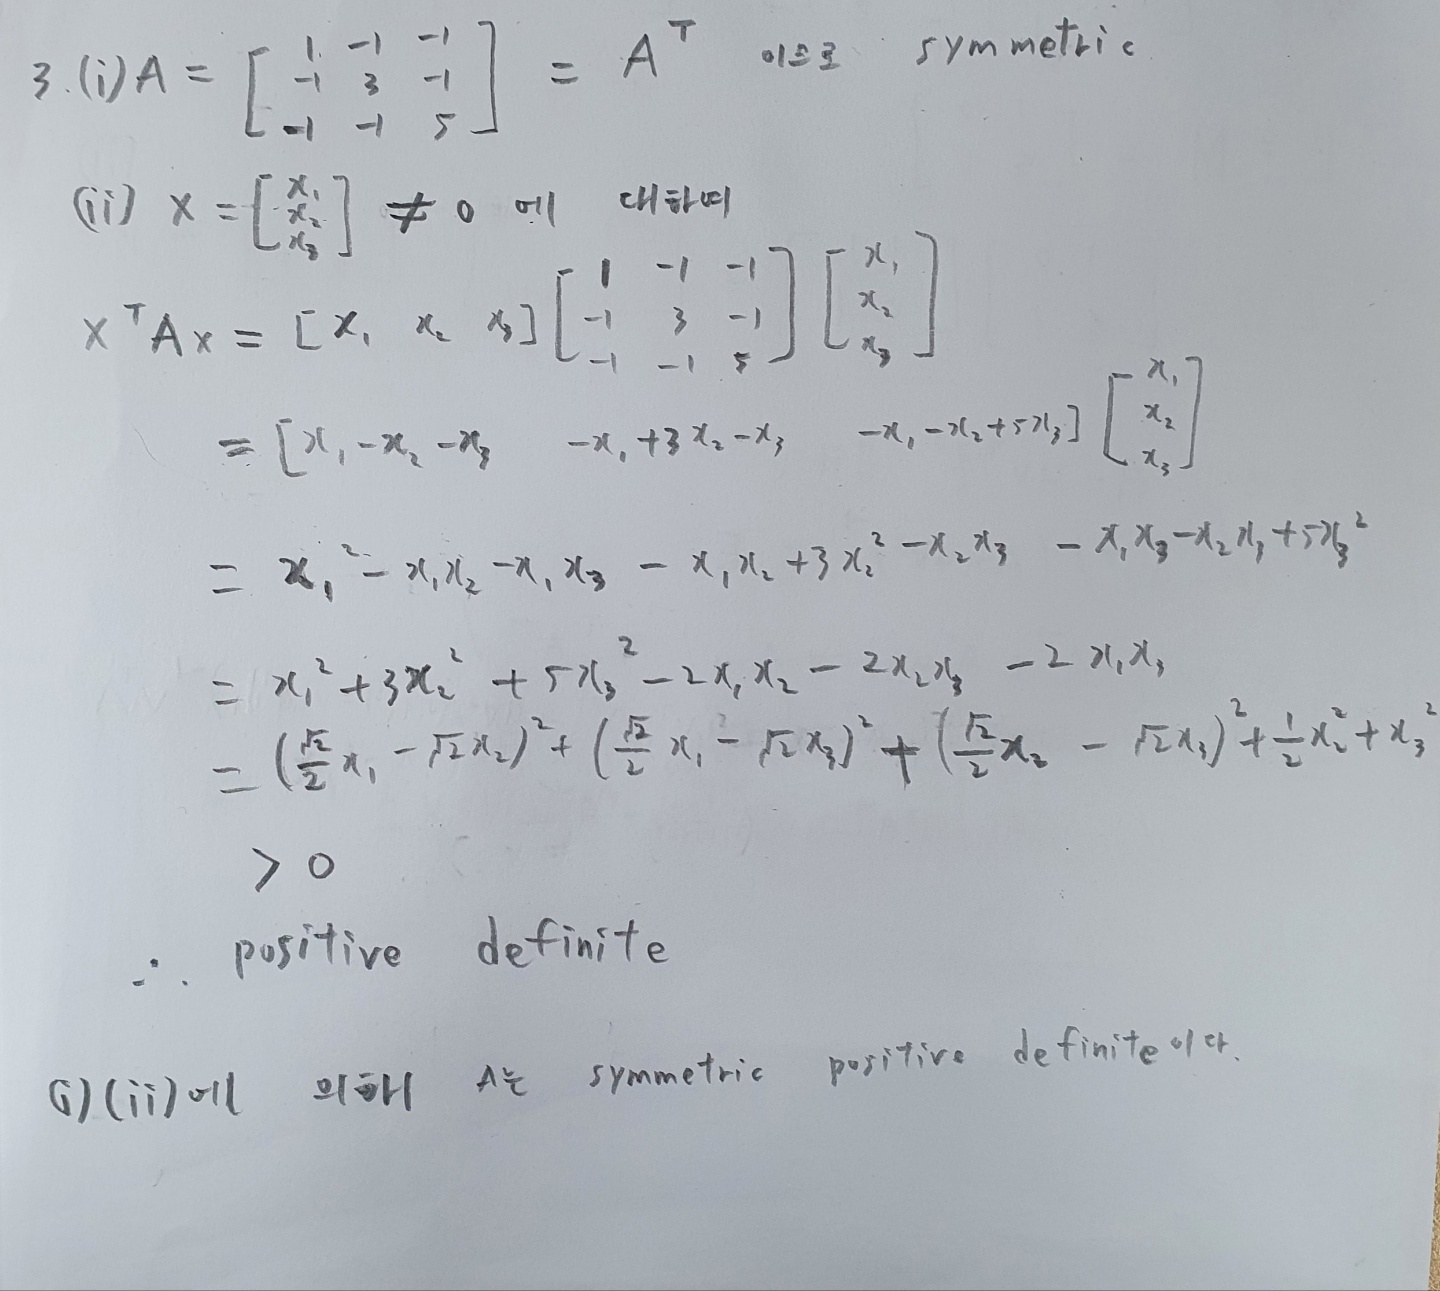 3.(i) A = [1 -1 -1; -1 3 -1; -1 -1 5] = Aᵀ 이므로 symmetric
(ii) x = [x₁; x₂; x₃] ≠ 0 에 대하여
xᵀAx = [x₁ x₂ x₃] [1 -1 -1; -1 3 -1; -1 -1 5] [x₁; x₂; x₃]
= [x₁-x₂-x₃ -x₁+3x₂-x₃ -x₁-x₂+5x₃] [x₁; x₂; x₃]
= x₁² - x₁x₂ - x₁x₃ - x₁x₂ + 3x₂² - x₂x₃ - x₁x₃ - x₂x₃ + 5x₃²
= x₁² + 3x₂² + 5x₃² - 2x₁x₂ - 2x₂x₃ - 2x₁x₃
= (√2/2 x₁ - √2x₂)² + (√2/2 x₁ - √2x₃)² + (√2/2 x₂ - √2x₃)² + 1/2 x₂² + x₃²
> 0
∴ positive definite
(i)(ii)에 의해 A는 symmetric positive definite이다.